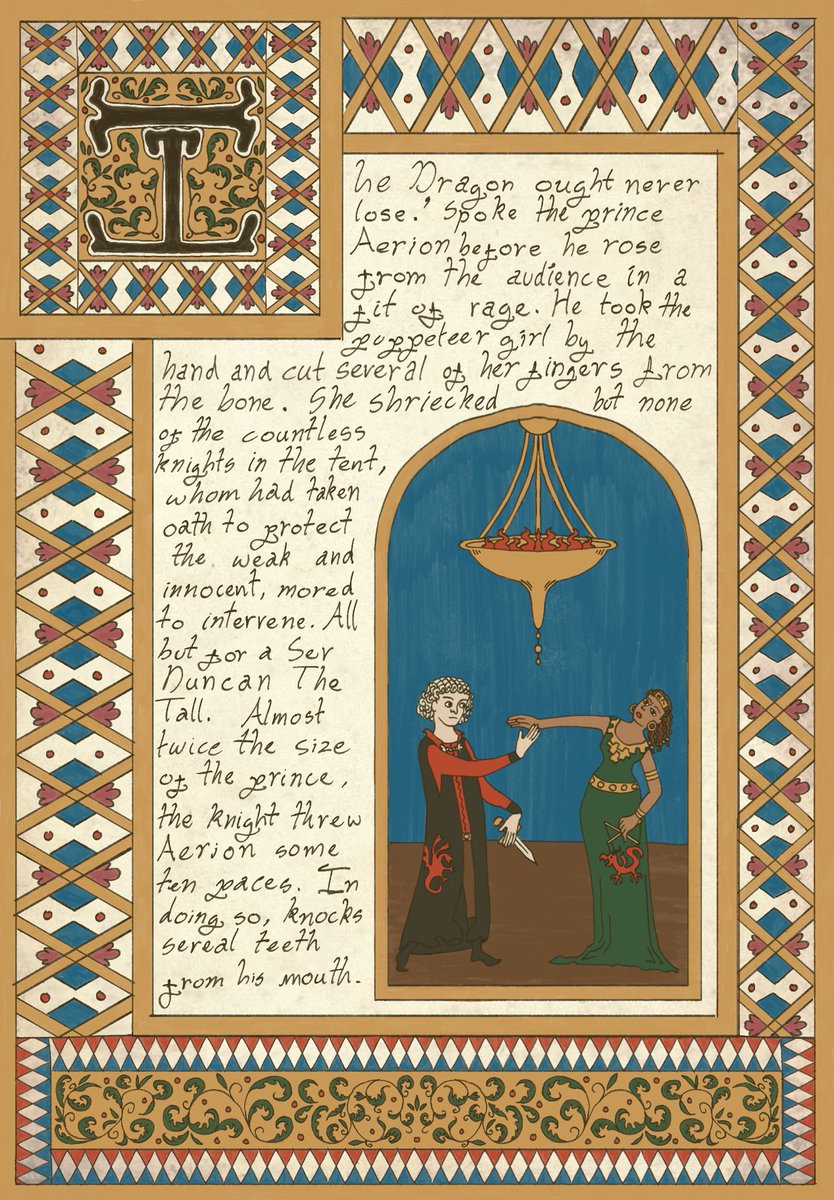 The Dragon ought never
lose.' Spoke the prince
Aerion before he rose
from the audience in a
fit of rage. He took the
puppeteer girl by the
hand and cut several of her fingers from
the bone. She shriecked but none
of the countless
knights in the tent,
whom had taken
oath to protect
the weak and
innocent, mored
to intervene. All
but for a Ser
Duncan The
Tall. Almost
twice the size
of the prince,
the knight threw
Aerion some
ten paces. In
doing so, knocks
sereal teeth
from his mouth.